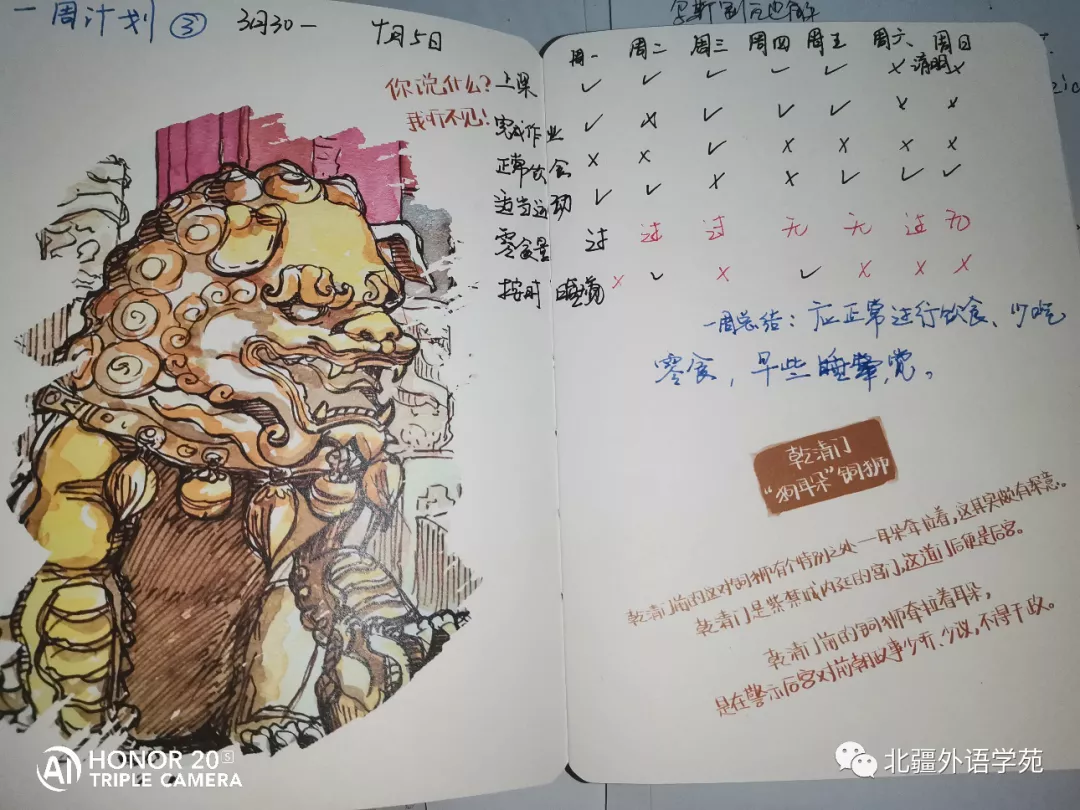 一周计划 ③ 3月30一 4月5日
周一 周二 周三 周四 周五 周六 周日
你说什么?
我听不见!
上课 ✓ ✓ ✓ ✓ ✓ × 清明 ×
完成作业 ✓ × ✓ ✓ ✓ × ×
正常饮食 × × ✓ × × × ×
适当运动 ✓ ✓ × × ✓ ✓ ✓
零食量 过 过 过 无 无 过 为
按时睡觉 × ✓ × ✓ × × ×
一周总结:应正常进行饮食、少吃
零食,早些睡觉。
乾清门
“狗耳朵”铜狮
乾清门前的这对铜狮有个特别之处——耳朵耷拉着,这其实颇有深意。
乾清门是紫禁城内廷的宫门,这道门后便是后宫。
乾清门前的铜狮耷拉着耳朵,
是在警示后宫对前朝政事少听、少议,不得干政。
AI HONOR 20S
TRIPLE CAMERA
北疆外语学苑